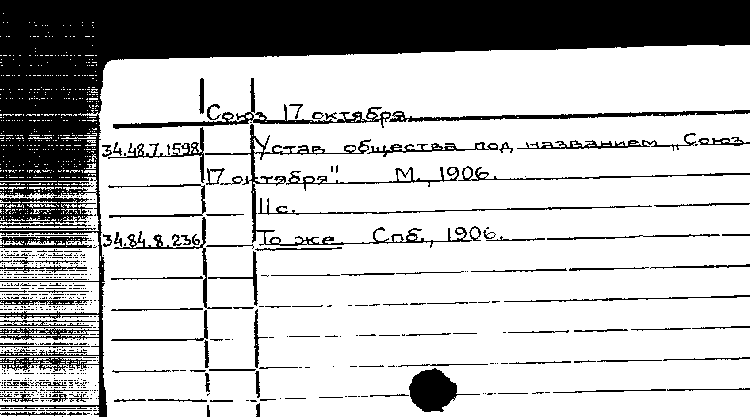 Союз 17 октября.
34.48.7.1598 Устав общества под названием „Союз
17 октября". М., 1906.
11 с.
34.84.8.236 То же. Спб., 1906.